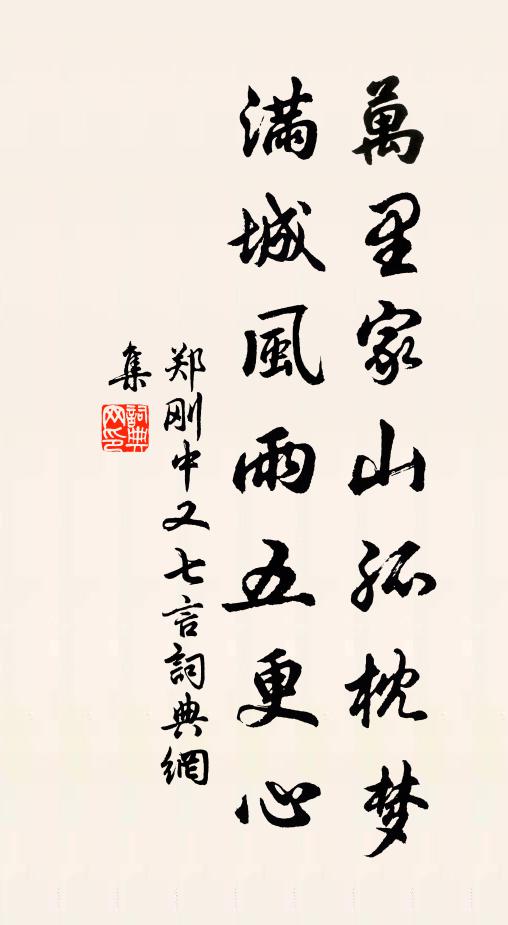 萬里家山孤枕梦
滿城風雨五更心
郑刚中又七言詞典網
集
詞典網印